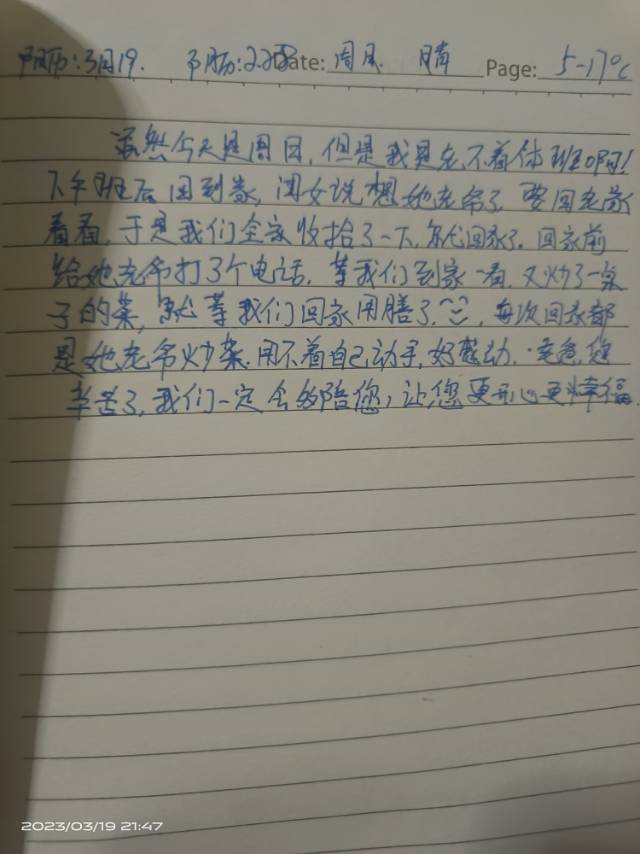 阳历:3月19. 阴历:2.28 Date: 周日. 晴 Page: 5-17℃
虽然今天是周日,但是我是在不着休班啊!
下午班后回到家,闺女说想她老爷了,要回老家
看看,于是我们全家收拾了一下,就回家了.回家前
给她老爷打了个电话,等我们到家一看,又炒了一桌
子的菜,就等我们回家用膳了,每次回家都
是她老爷炒菜,用不着自己动手,好感动,老爸,您
辛苦了,我们一定会多陪您,让您更开心更幸福.
2023/03/19 21:47